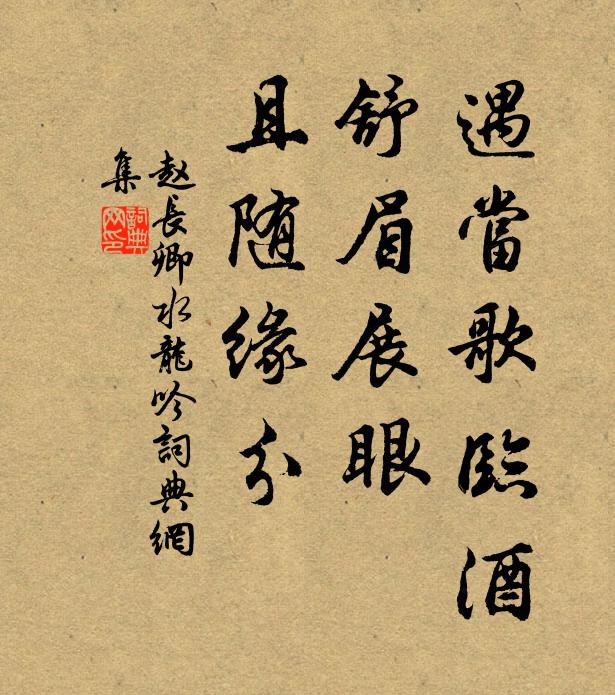 遇當歌臨酒
舒眉展眼
且随緣分
赵長卿水龍吟詞典網
集
詞典
网印